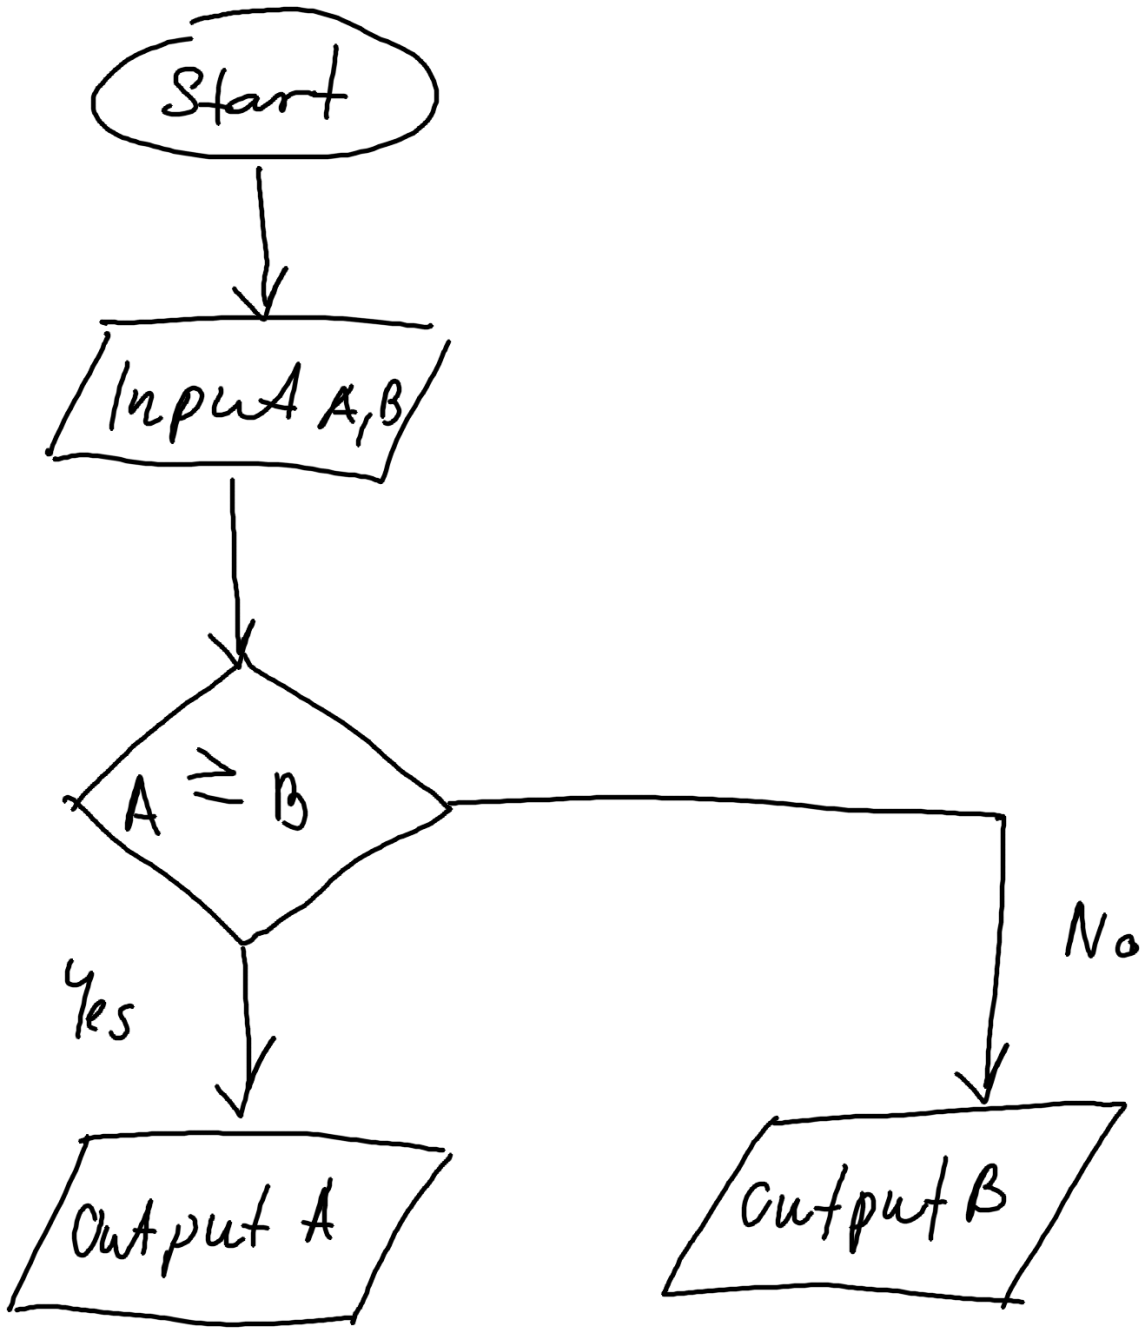 Start
Input A,B
A ≥ B
No
Yes
Output A
Output B